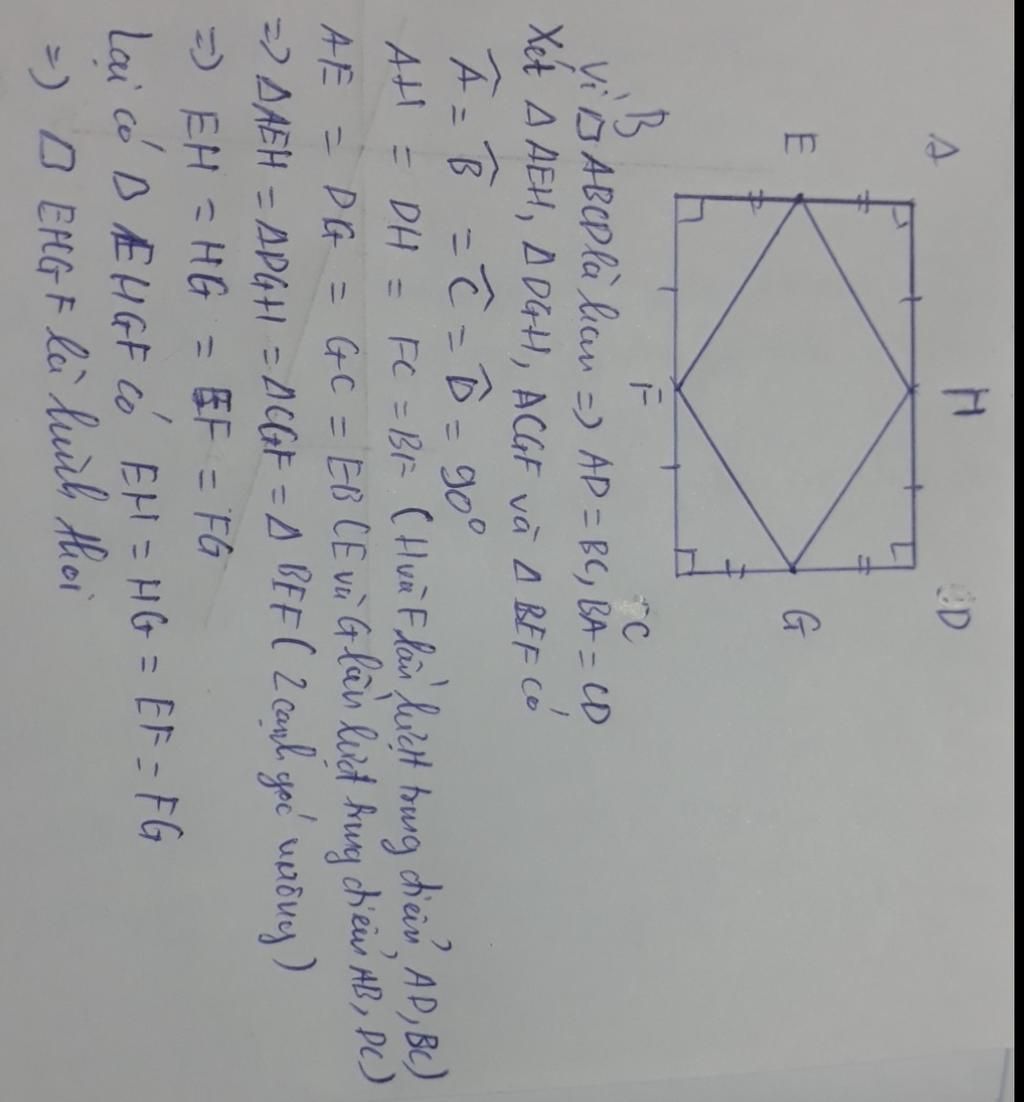 A
H
D
E
G
B
F
C
Vì □ ABCD là hcn => AD = BC, BA = CD
Xét Δ AEH, Δ DGH, ΔCGF và Δ BEF có
Â = B̂ = Ĉ = D̂ = 90°
AH = DH = FC = BF (H và F lần lượt trung điểm AD, BC)
AE = DG = GC = EB (E và G lần lượt trung điểm AB, DC)
=> ΔAEH = ΔDGH = ΔCGF = Δ BEF (2 cạnh góc vuông)
=> EH = HG = EF = FG
Lại có □ EHGF có EH = HG = EF = FG
=> □ EHGF là hình thoi